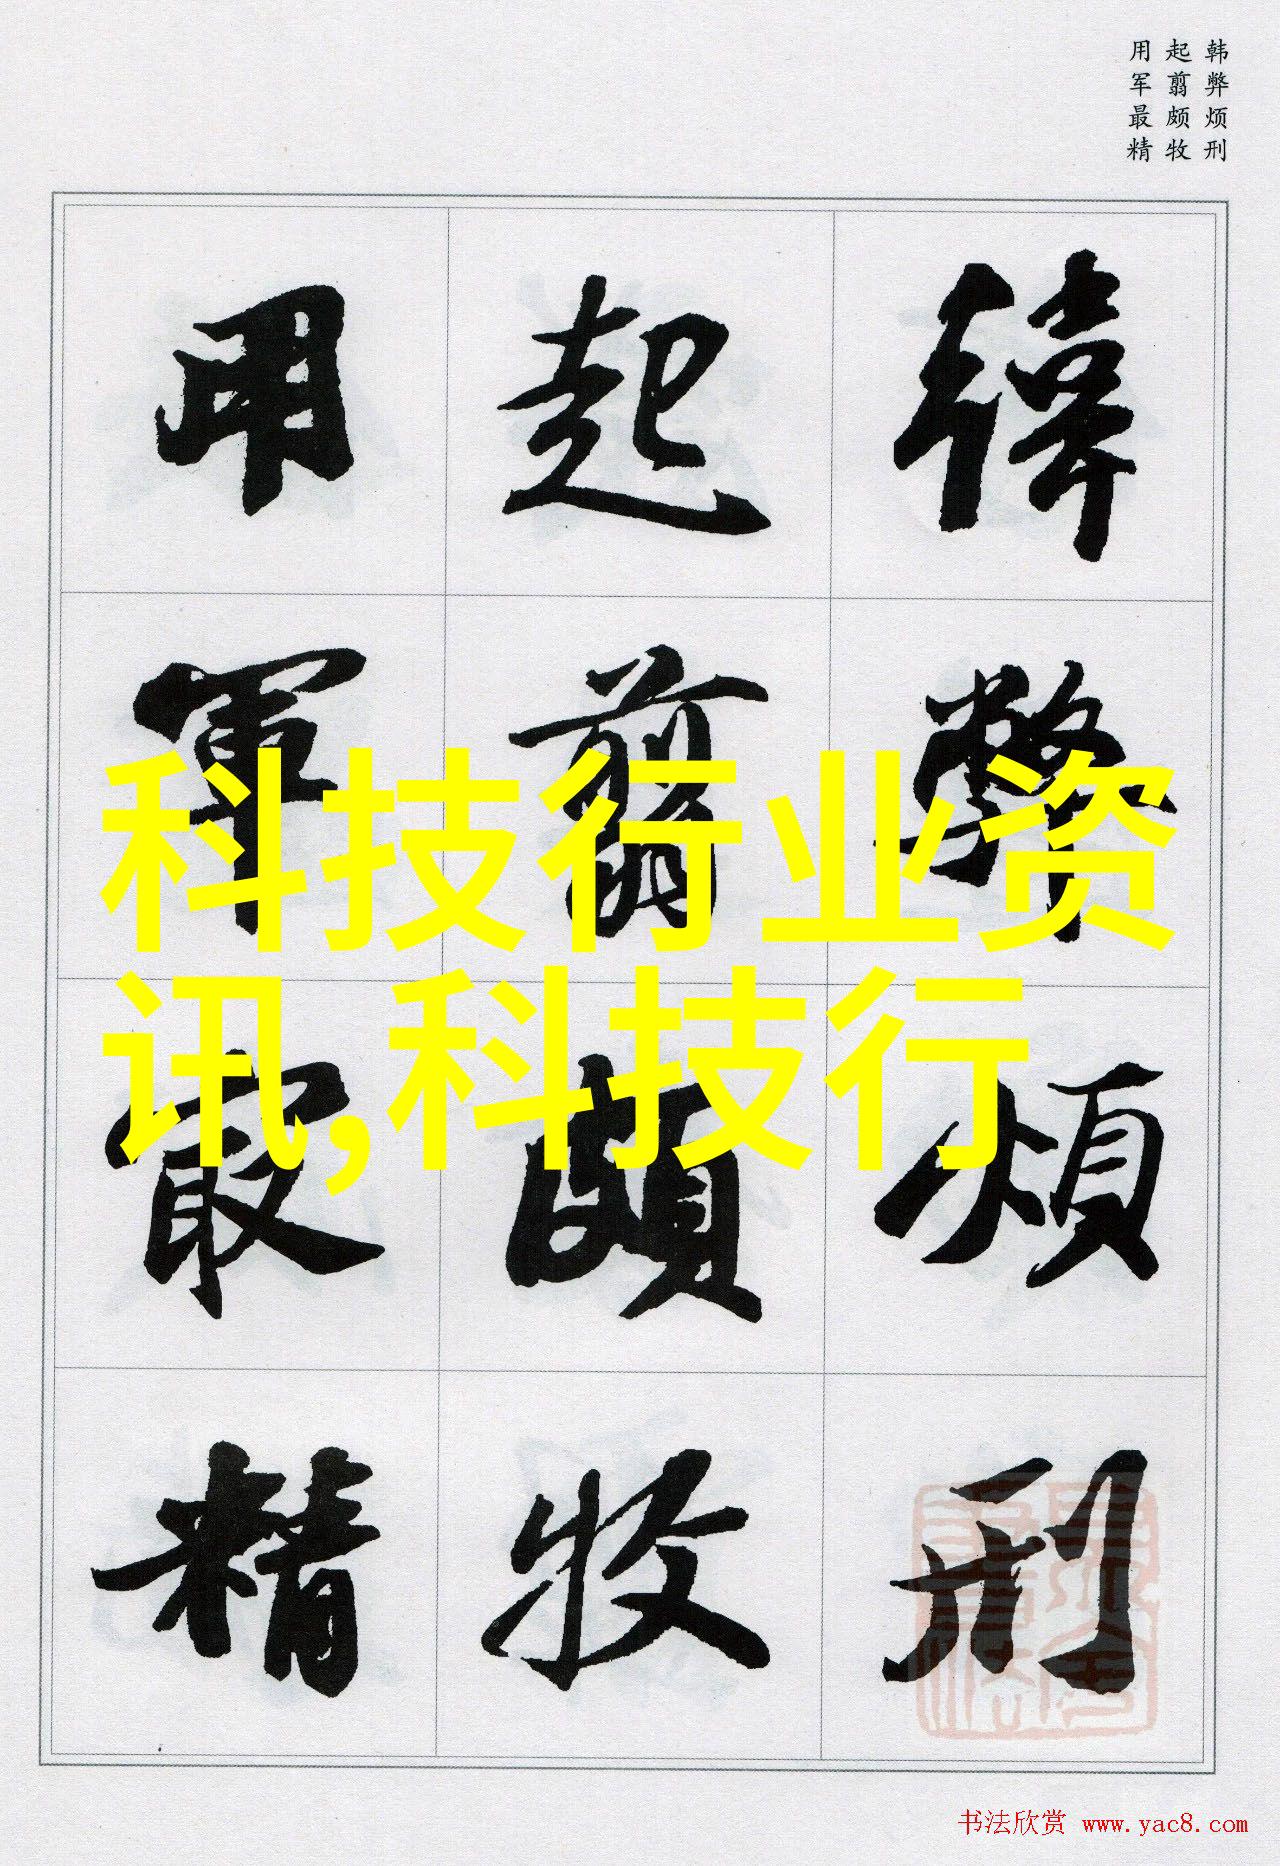 韩弊烦刑
起翦颇牧
用军最精
韓弊煩刑
起翦頗牧
用軍最精
科技行业资
讯,科技行
书法欣赏 www.yac8.com